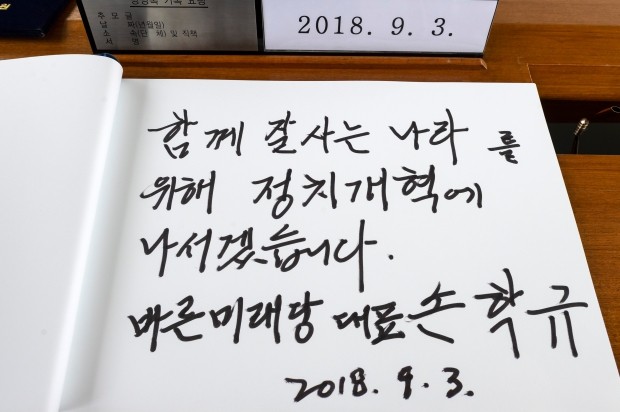 방명록 기록 요령
추모글
날짜(년월일)
소속(단체) 및 직책
서명
2018. 9. 3.
함께 잘사는 나라를
위해 정치개혁에
나서겠습니다.
바른미래당 대표 손학규
2018. 9. 3.